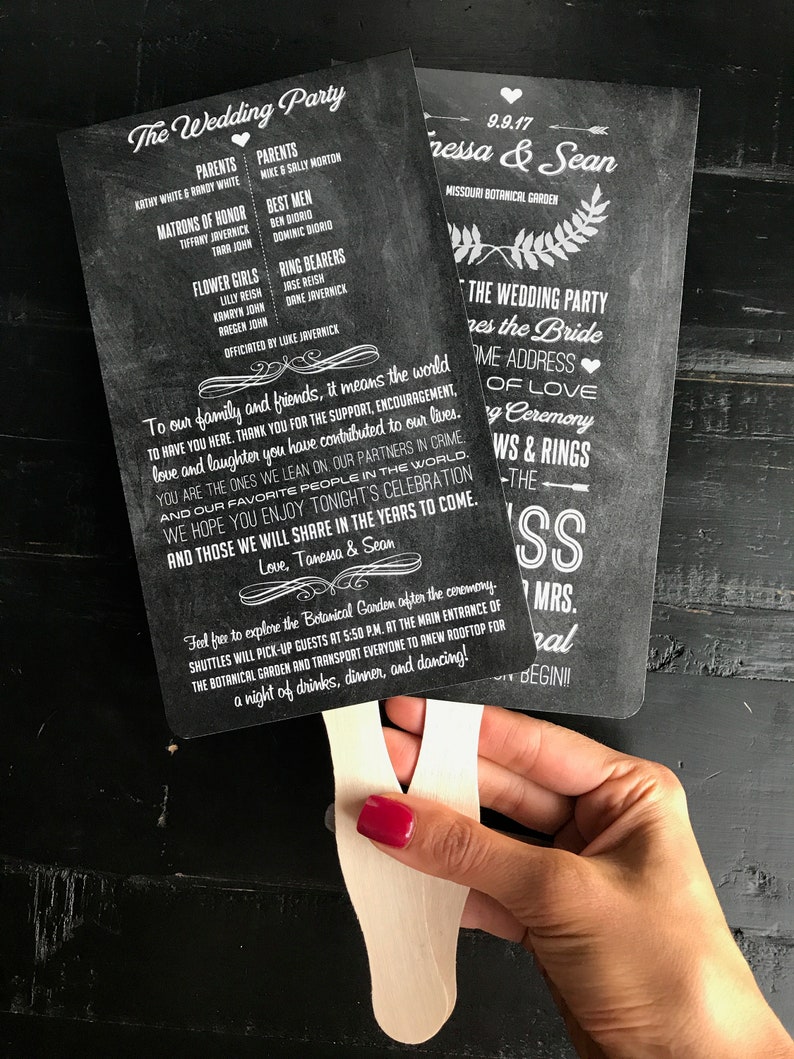 The Wedding Party
PARENTS
KATHY WHITE & RANDY WHITE
MATRONS OF HONOR
TIFFANY JAVERNICK
TARA JOHN
FLOWER GIRLS
LILLY REISH
KAMRYN JOHN
RAEGEN JOHN
PARENTS
MIKE & SALLY MORTON
BEST MEN
BEN DIORIO
DOMINIC DIORIO
RING BEARERS
JASE REISH
DANE JAVERNICK
OFFICIATED BY LUKE JAVERNICK
To our family and friends, it means the world
TO HAVE YOU HERE. THANK YOU FOR THE SUPPORT, ENCOURAGEMENT,
love and laughter you have contributed to our lives.
YOU ARE THE ONES WE LEAN ON, OUR PARTNERS IN CRIME,
AND OUR FAVORITE PEOPLE IN THE WORLD.
WE HOPE YOU ENJOY TONIGHT'S CELEBRATION
AND THOSE WE WILL SHARE IN THE YEARS TO COME.
Love, Tanessa & Sean
Feel free to explore the Botanical Garden after the ceremony.
SHUTTLES WILL PICK-UP GUESTS AT 5:50 P.M. AT THE MAIN ENTRANCE OF
THE BOTANICAL GARDEN AND TRANSPORT EVERYONE TO ANEW ROOFTOP FOR
a night of drinks, dinner, and dancing!
9.9.17
nessa & Sean
MISSOURI BOTANICAL GARDEN
THE WEDDING PARTY
the Bride
OME ADDRESS
OF LOVE
Ceremony
WS & RINGS
THE
ISS
MRS.
nal
ON BEGIN!!